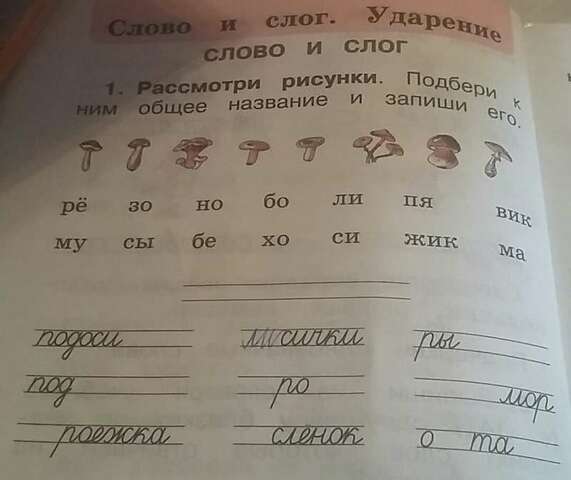 Слово и слог. Ударение
СЛОВО И СЛОГ
1. Рассмотри рисунки. Подбери к
ним общее название и запиши его.
рё зо но бо ли пя вик
му сы бе хо си жик ма
подоси лисички ры
под ро мор
роежка сленок о та